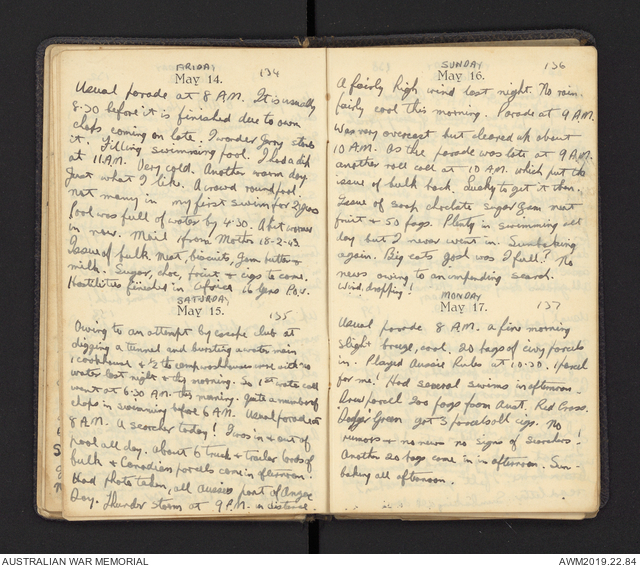 FRIDAY
May 14. 134
Usual parade at 8 A.M. It is usually
8.30 before it is finished due to own
chaps coming on late. I wonder Jerry stands
it. Filling swimming pool. I had a dip
at 11 A.M. Very cold. Another warm day
Just what I like. A crowd round pool
not many in my first swim for 2 years
Pool was full of water by 4.30. A bit warmer
in now. Mail 1 from Mother 18-2-43
Issue of bulk. Meat, biscuits, Jam butter &
milk. Sugar, choc, fruit & cigs to come.
Hostilities finished in Africa P.O.W.
SATURDAY
May 15. 135
Owing to an attempt by escape club at
digging a tunnel and bursting a water main
1 cookhouse & 1/2 the were with no
water last night & this morning. So 1st roll call
went at 6.30 AM this morning. Quite a number of
chaps in swimming before 6 AM. Usual parade on
8 A.M. A scorcher today! I was in & out of
pool all day. About 6 truck & trailer loads of
bulk & Canadian parcels come in afternoon.
Had photo taken, all Aussies part of Anzac
Day. Thunder storm at 9 P.M. in distance
SUNDAY
May 16. 136
A fairly high wind last night. No rain.
fairly cool this morning. Parade at 9 A.M.
Was very overcast but cleared up about
10 A.M. As the parade was late at 9 A.M.
another roll call at 10 A.M. which put the
issue of bulk back. Lucky to get it then.
Issue of soap choclate sugar Jam meat
fruit & 50 fags. Plenty in swimming all
day but I never went in. Sunbaking
again. Big eats gosh was I full? No
news owing to an impending search.
Wind dropping!
MONDAY
May 17. 137
Usual parade 8 A.M. a fine morning
slight breeze, cool. 20 bags of civvy parcels
in. Played Aussie Rules at 10.30. 1 parcel
for me! Had several swims in afternoon.
Drew parcel 200 fags from Aust. Red Cross.
Green got 3 parcels all cigs. No
rumors & no news no signs of scorchers!
Another 20 bags come in in afternoon. Sun-
baking all afternoon.
AUSTRALIAN WAR MEMORIAL
AWM2019.22.84